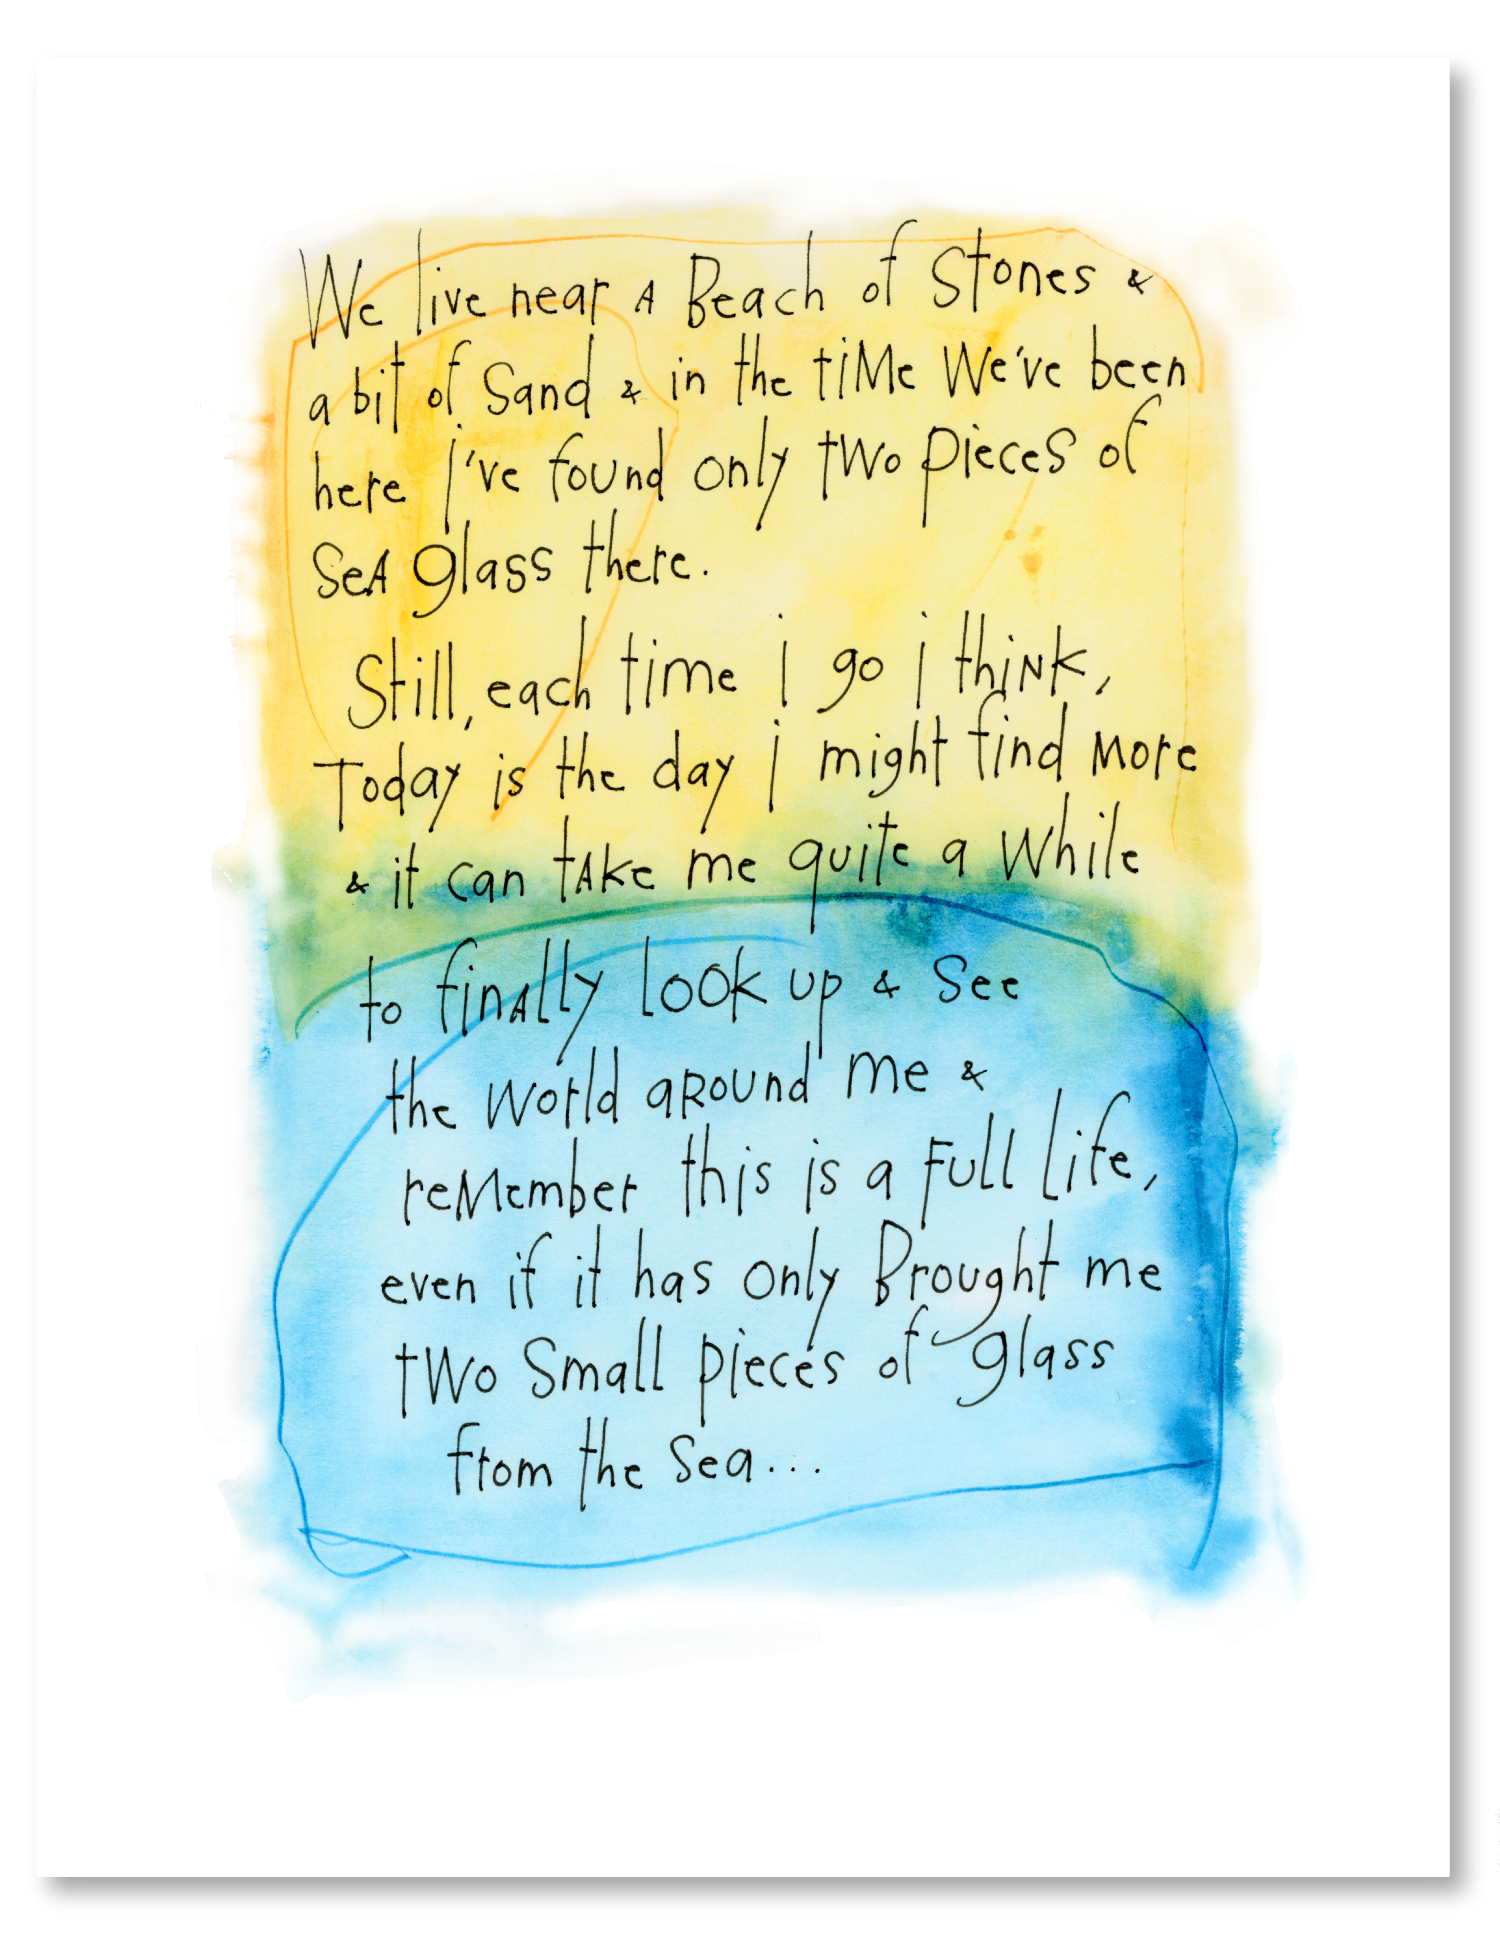 We live near A Beach of Stones &
a bit of Sand & in the tiMe We've been
here i've found only two pieces of
SeA glass there.
Still, each time i go i thiNk,
Today is the day i might find More
& it can tAke me quite a While
to finAlly look up & See
the world aRound me &
reMember this is a Full Life,
even if it has only Brought me
two Small pieces of glass
from the Sea...